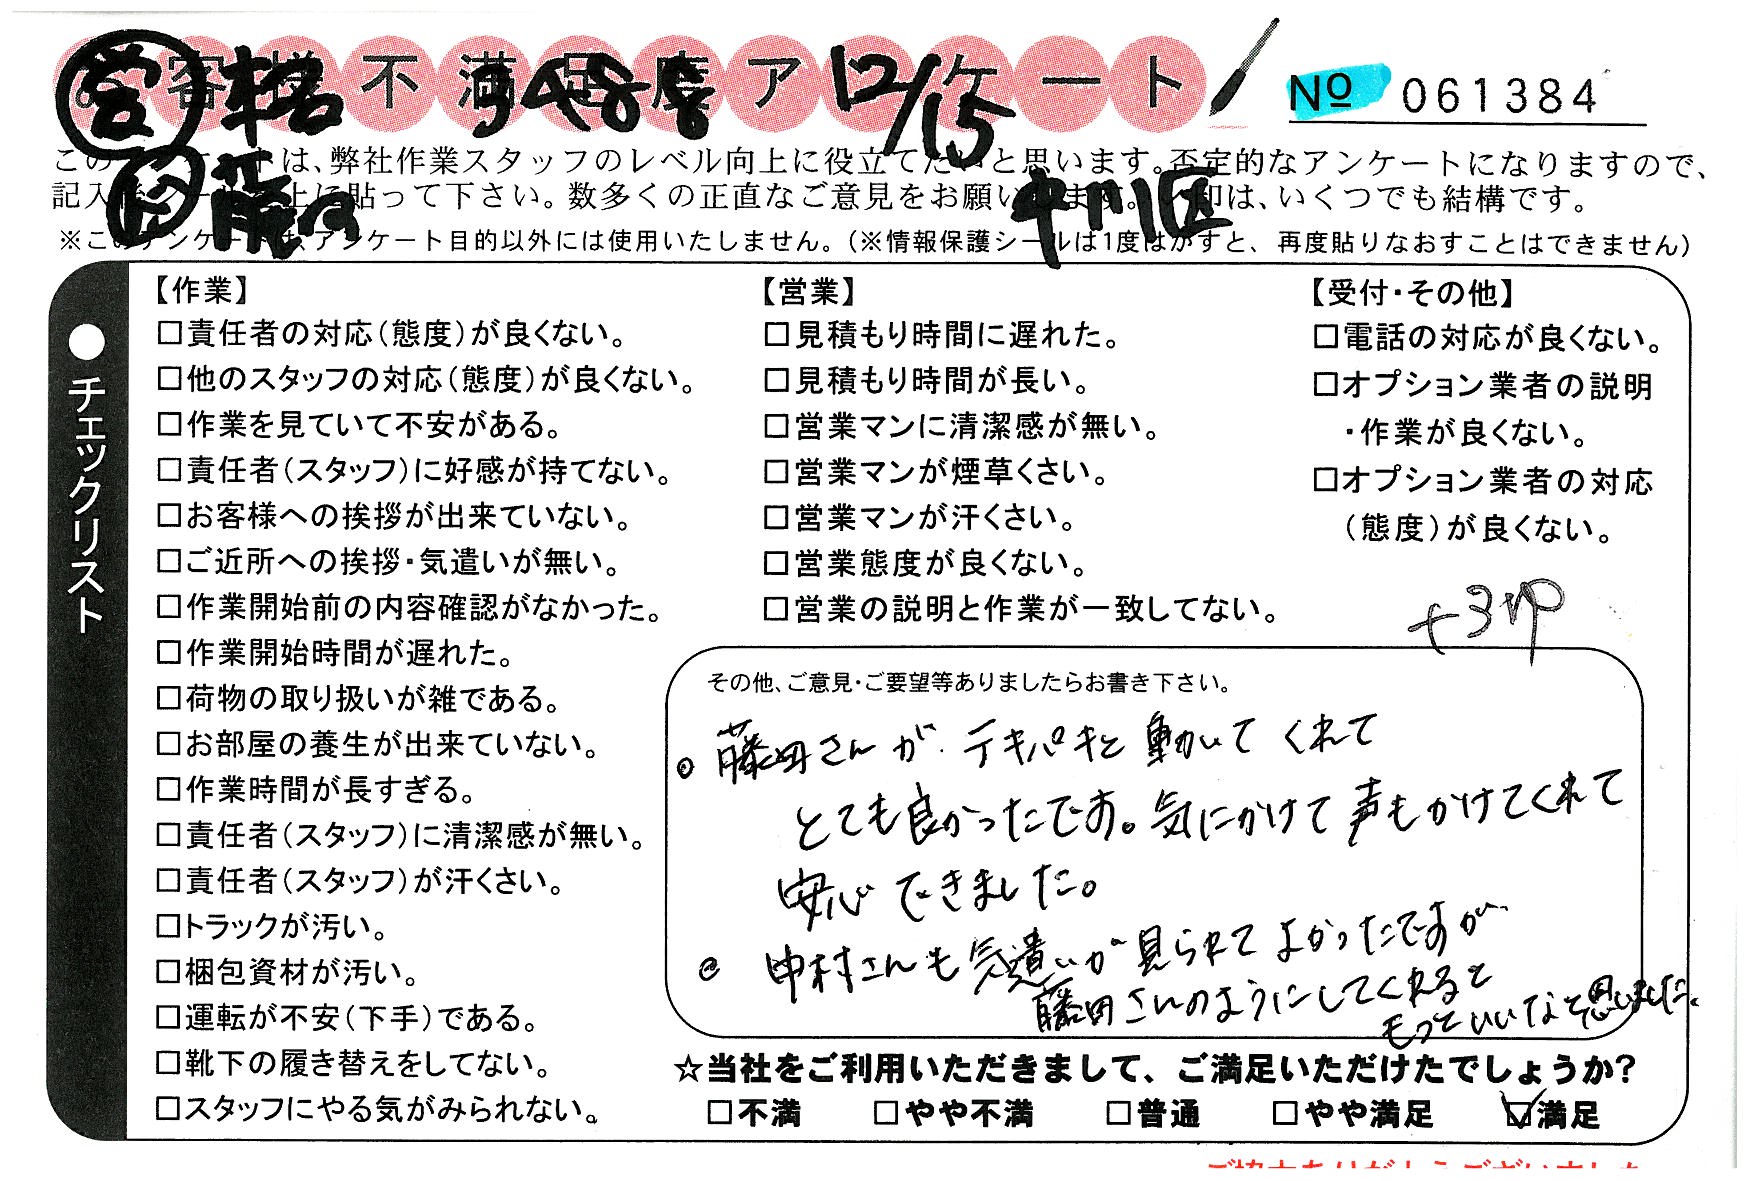 お客様不満足度アンケート
№ 061384
12/15
中川区
このアンケートは、弊社作業スタッフのレベル向上に役立てたいと思います。否定的なアンケートになりますので、
記入後シールを上に貼って下さい。数多くの正直なご意見をお願いします。レ印は、いくつでも結構です。
※このアンケートは、アンケート目的以外には使用いたしません。(※情報保護シールは1度はがすと、再度貼りなおすことはできません)
●チェックリスト
【作業】
□責任者の対応(態度)が良くない。
□他のスタッフの対応(態度)が良くない。
□作業を見ていて不安がある。
□責任者(スタッフ)に好感が持てない。
□お客様への挨拶が出来ていない。
□ご近所への挨拶・気遣いが無い。
□作業開始前の内容確認がなかった。
□作業開始時間が遅れた。
□荷物の取り扱いが雑である。
□お部屋の養生が出来ていない。
□作業時間が長すぎる。
□責任者(スタッフ)に清潔感が無い。
□責任者(スタッフ)が汗くさい。
□トラックが汚い。
□梱包資材が汚い。
□運転が不安(下手)である。
□靴下の履き替えをしてない。
□スタッフにやる気がみられない。
【営業】
□見積もり時間に遅れた。
□見積もり時間が長い。
□営業マンに清潔感が無い。
□営業マンが煙草くさい。
□営業マンが汗くさい。
□営業態度が良くない。
□営業の説明と作業が一致してない。
【受付・その他】
□電話の対応が良くない。
□オプション業者の説明
・作業が良くない。
□オプション業者の対応
(態度)が良くない。
その他、ご意見・ご要望等ありましたらお書き下さい。
藤田さんが テキパキと 動いて くれて
とても良かったです。気にかけて 声もかけてくれて
安心 できました。
中村さんも 気遣いが 見られて よかったですが、
藤田さんのようにしてくれると
もっといいなと思いました。
☆当社をご利用いただきまして、ご満足いただけたでしょうか?
□不満 □やや不満 □普通 □やや満足 ☑満足
ご協力ありがとうございました